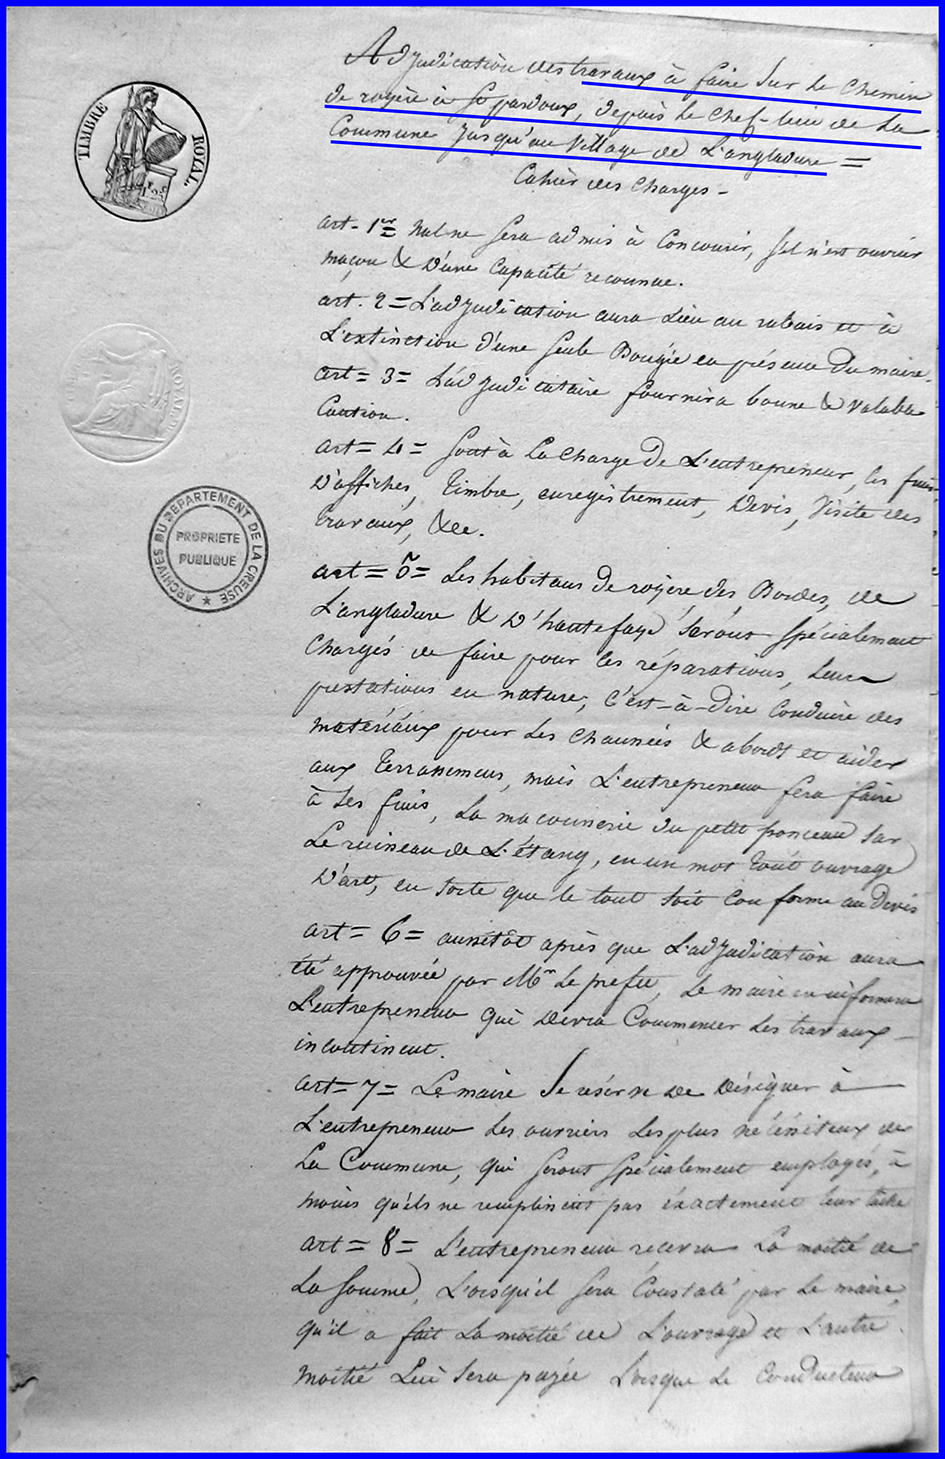 TIMBRE ROYAL.
1 F. 25
ARCHIVES DU DEPARTEMENT DE LA CREUSE
PROPRIETE
PUBLIQUE
Adjudication des travaux à faire sur le chemin
de royère à St pardoux, depuis le chef-lieu de La
Commune jusqu'au Village de L'angladure =
Cahier des Charges -
art. 1er = Nul ne sera admis à Concourir, s'il n'est ouvrier
maçon & d'une Capacité reconnue.
art. 2 = L'adjudication aura Lieu au rabais et à
L'extinction d'une seule Bougie en présence du maire.
art = 3 = L'adjudicataire fournira bonne & valable
Caution.
art = 4 = sont à La charge de L'entrepreneur, les frais
d'affiches, Timbre, enregistrement, Devis, Visite des
travaux, &ce.
art = 5 = Les habitans de royère des Bordes, de
L'angladure & d'hautefaye seront spécialement
Chargés de faire pour les réparations, leurs
prestations en nature, c'est-à-dire Conduire des
matériaux pour les chaussées & abords et aider
aux terrassemens, mais L'entrepreneur fera faire
à ses frais, La maçonnerie du petit ponceau sur
Le ruisseau de L'étang, en un mot tout ouvrage
D'art, en sorte que le tout soit Conforme au Devis
art = 6 = aussitôt après que L'adjudication aura
été approuvée par Mr Le prefet, Le maire en informera
L'entrepreneur qui devra Commencer les travaux -
incontinent.
art = 7 = Le maire se réserve de désigner à
L'entrepreneur Les ouvriers Les plus nécéssiteux de
La Commune, qui seront spécialement employés, à
moins qu'ils ne remplissent pas éxactement leur tâche
art = 8 = L'entrepreneur recevra La moitié de
La somme, Lorsqu'il sera Constaté par Le maire,
qu'il a fait La moitié de L'ouvrage et L'autre
moitié Lui sera payée Lorsque Le Conducteur